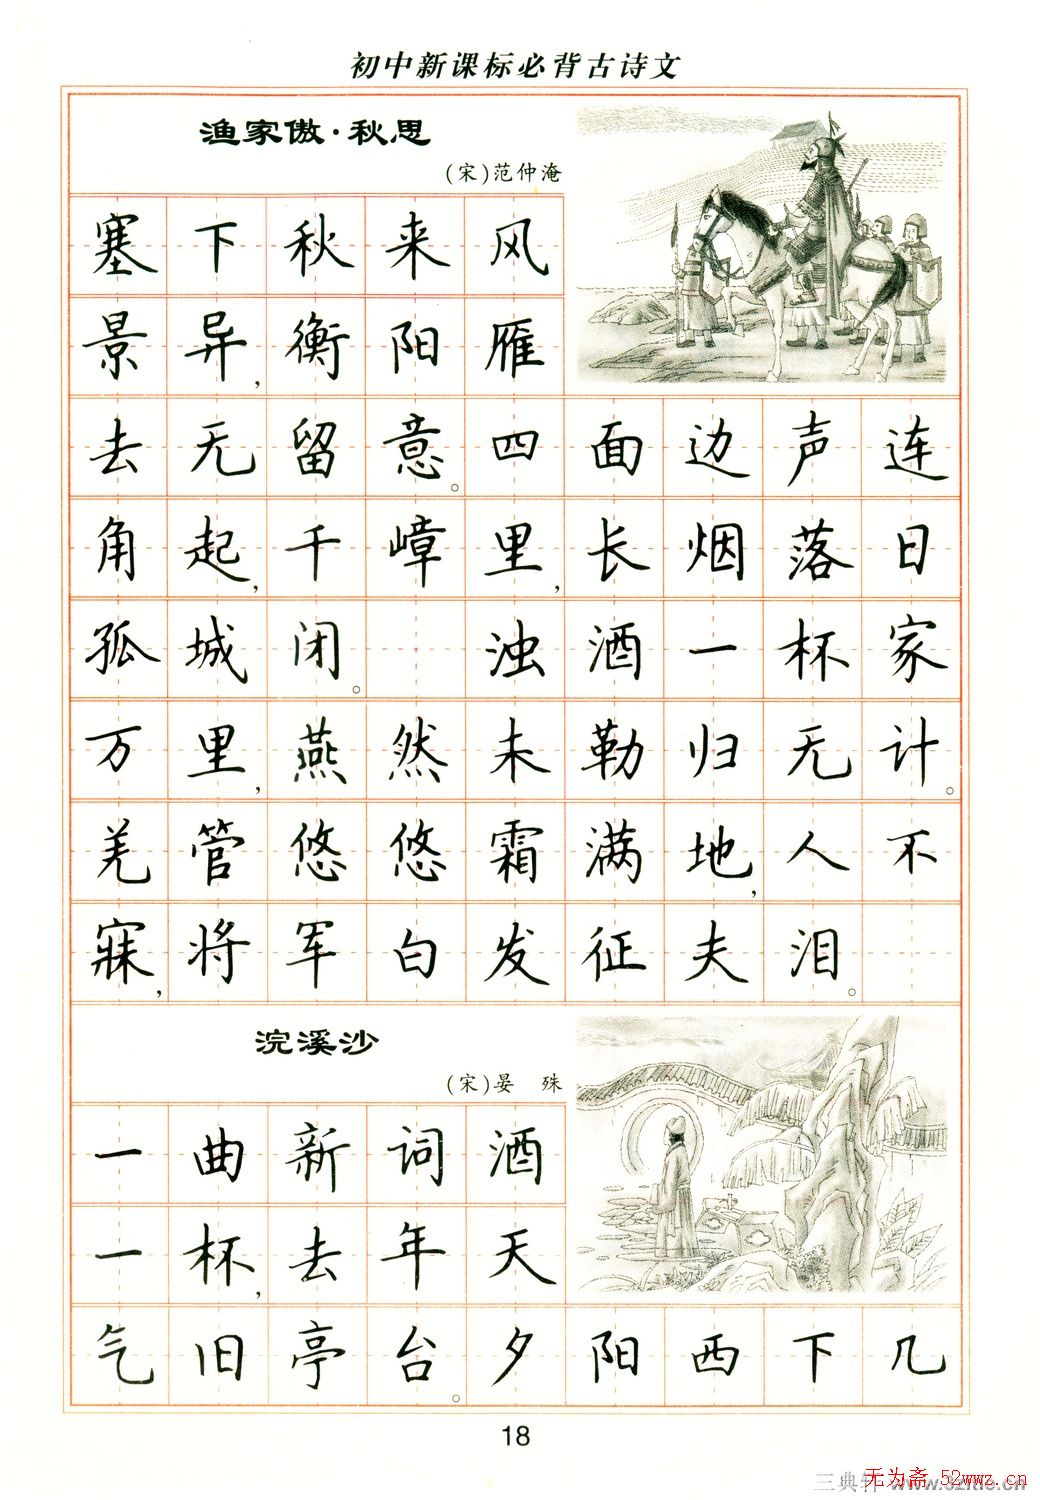 初中新课标必背古诗文
渔家傲·秋思
(宋)范仲淹
塞下秋来风
景异,衡阳雁
去无留意。四面边声连
角起,千嶂里,长烟落日
孤城闭。 浊酒一杯家
万里,燕然未勒归无计。
羌管悠悠霜满地,人不
寐,将军白发征夫泪。
浣溪沙
(宋)晏 殊
一曲新词酒
一杯,去年天
气旧亭台。夕阳西下几
18
三典轩 www.52ltlc.cn
无为斋 52wwz.cn